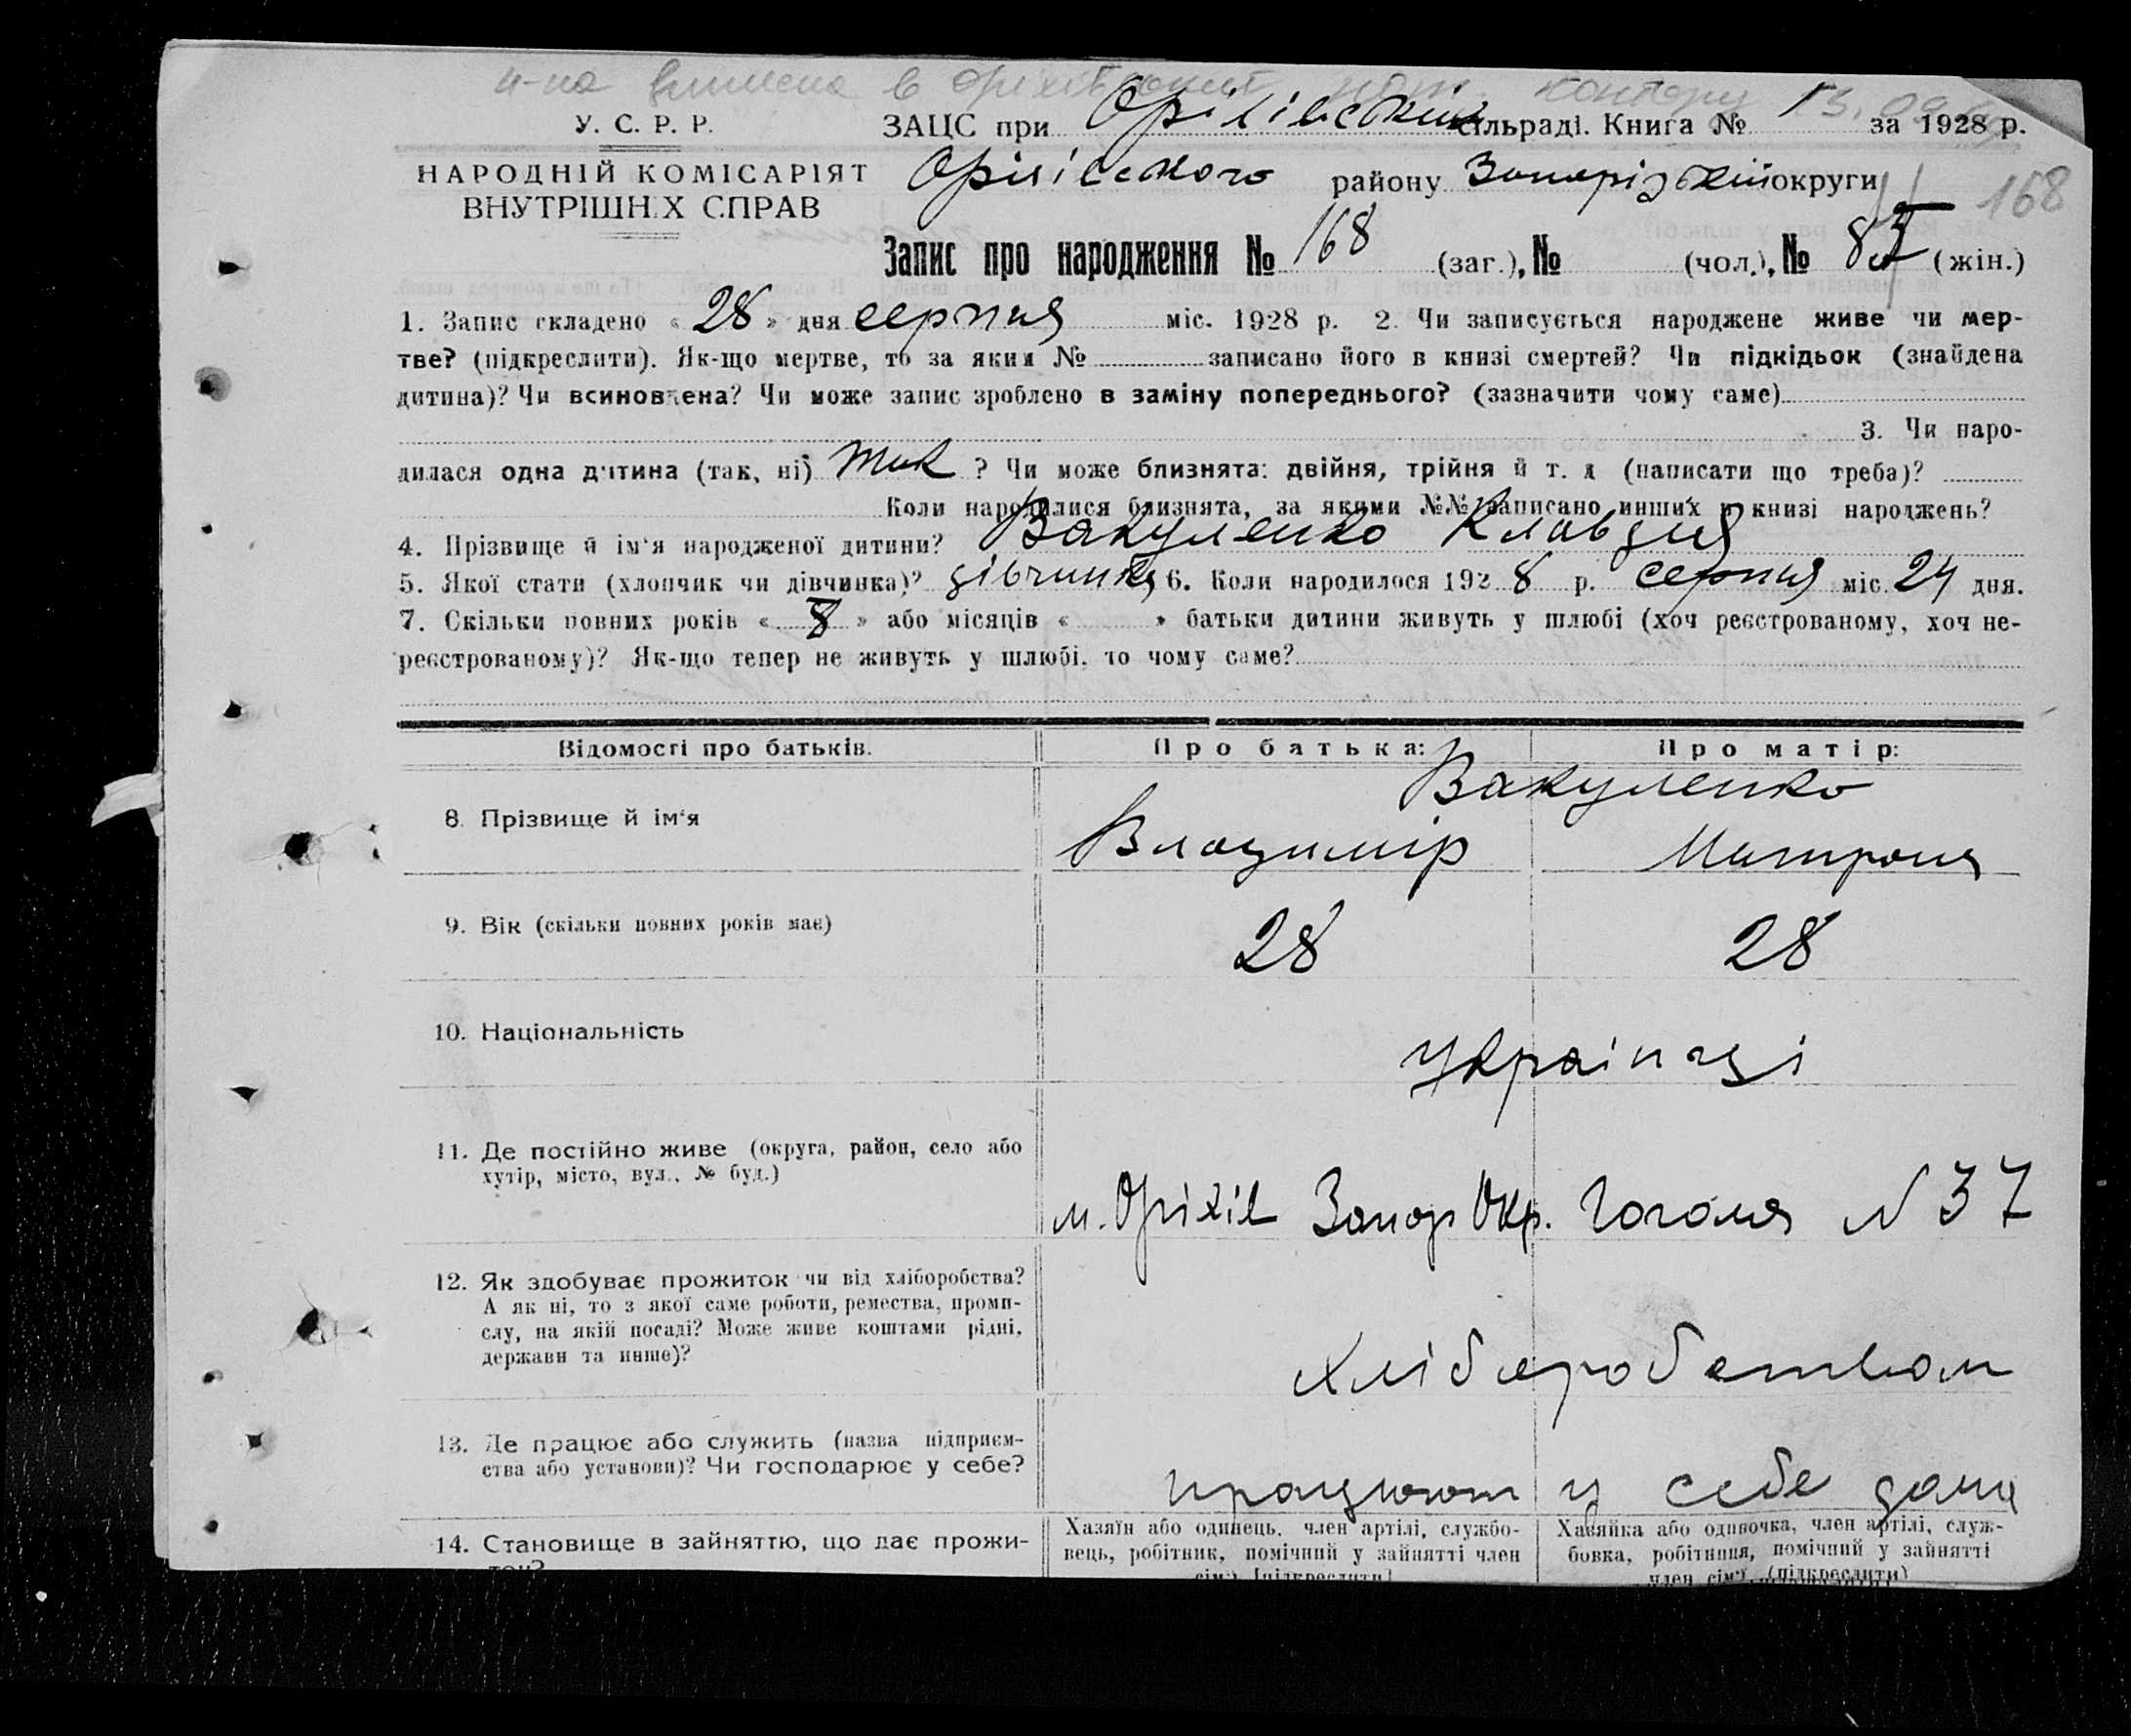 в
У. С. Р. Р.
ЗАЦС при Оріхівській сільраді. Книга № за 1928 р.
НАРОДНІЙ КОМІСАРІЯТ
ВНУТРІШНІХ СПРАВ
Оріхівського району Запорізької округи
168
Запис про народження № 168 (заг.), № (чол.), № (жін.)
1. Запис складено « 28 » дня серпня міс. 1928 р. 2. Чи записується народжене живе чи мер-
тве? (підкреслити). Як-що мертве, то за яким № записано його в книзі смертей? Чи підкідьок (знайдена
дитина)? Чи всиновлена? Чи може запис зроблено в заміну попереднього? (зазначити чому саме)
3. Чи наро-
дилася одна дитина (так, ні) так ? Чи може близнята: двійня, трійня й т. д (написати що треба)?
Коли народилися близнята, за якими №№ записано инших в книзі народжень?
4. Прізвище й ім'я народженої дитини? Вакуленко Клавдия
5. Якої стати (хлопчик чи дівчинка)? дівчинка 6. Коли народилося 1928 р. серпня міс. 24 дня.
7. Скільки повних років « 8 » або місяців « » батьки дитини живуть у шлюбі (хоч реєстрованому, хоч не-
реєстрованому)? Як-що тепер не живуть у шлюбі, то чому саме?
Відомості про батьків. Про батька: Про матір:
Вакуленко
8. Прізвище й ім'я Владимір Митроня
9. Вік (скільки повних років має) 28 28
10. Національність українці
11. Де постійно живе (округа, район, село або
хутір, місто, вул., № буд.)
м. Оріхів Запор Окр. Гоголя N 37
12. Як здобуває прожиток чи від хліборобства?
А як ні, то з якої саме роботи, ремества, проми-
слу, на якій посаді? Може живе коштами рідні,
держави та инше)?
хліборобством
13. Де працює або служить (назва підприєм-
ства або установи)? Чи господарює у себе?
працюют у себе дома
14. Становище в зайняттю, що дає прожи-
ток?
Хазяїн або одинець, член артілі, службо-
вець, робітник, помічний у зайнятті член
сім'ї (підкреслити)
Хазяйка або одиночка, член артілі, служ-
бовка, робітниця, помічний у зайнятті
член сім'ї (підкреслити)